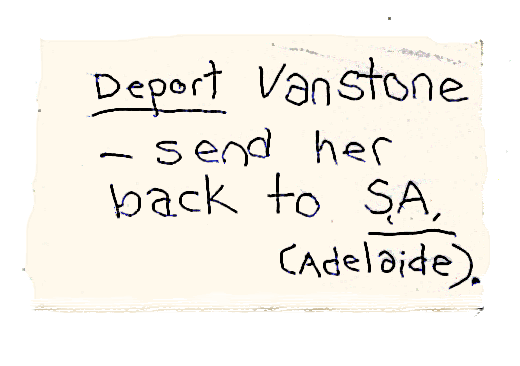 Deport Vanstone
- send her
back to S.A.
(Adelaide).